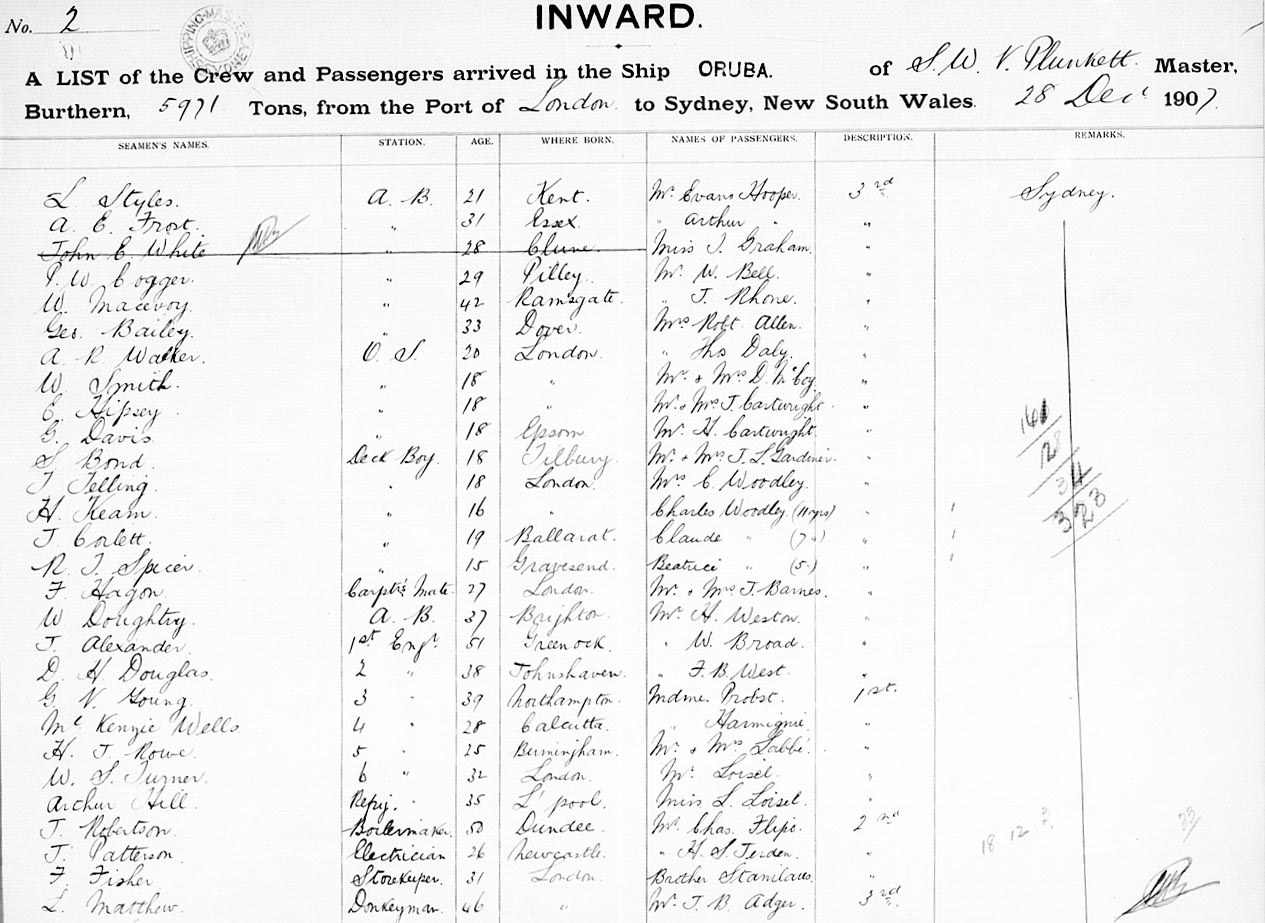 No. 2
INWARD.
A LIST of the Crew and Passengers arrived in the Ship ORUBA. of S. W. V. Plunkett. Master,
Burthern, 5971 Tons, from the Port of London to Sydney, New South Wales. 28 Decr 1907.
SEAMEN'S NAMES. STATION. AGE. WHERE BORN. NAMES OF PASSENGERS. DESCRIPTION. REMARKS.
L. Styles. A. B. 21 Kent. Mr. Evans Hooper. 3rd Sydney.
A. E. Frost. " 31 Essex " Arthur " "
John E. White " 28 Clune Miss J. Graham. "
P. W. Cogger. " 29 Pilley. Mr. W. Bell. "
W. Macevoy. " 42 Ramsgate. " J. Rhone. "
Geo. Bailey. " 33 Dover. Mrs Robt. Allen. "
A. R. Walker. O. S. 20 London. " Thos Daly. "
W. Smith. " 18 " Mr. & Mrs D. McCoy. "
E. Hipsey " 18 " Mr. & Mrs J. Cartwright. "
G. Davis. " 18 Epsom Mr. H. Cartwright. " 161
S. Bond. Deck Boy. 18 Tilbury. Mr. & Mrs J. L. Gardiner. " 28
J. Telling. " 18 London. Mrs C. Woodley. " 34
H. Keam. " 16 " Charles Woodley. (11 yrs) " 323
J. Corlett. " 19 Ballarat. Claude " (7 ") "
R. J. Spicer. " 15 Gravesend. Beatrice " (5 ") "
F. Hagon. Carptr's Mate. 27 London. Mr. & Mrs J. Barnes. "
W. Doughtry. A. B. 37 Brighton. Mr. H. Weston. "
J. Alexander. 1st Engr. 51 Greenock. " W. Broad. "
D. H. Douglas. 2 " 38 Johnshaven. " F. B. West. "
G. V. Young. 3 " 39 Northampton. Mdme. Probst. 1st.
Mc Kenzie Wells 4 " 28 Calcutta. " Harmignie. "
H. J. Rowe. 5 " 25 Birmingham. Mr. & Mrs Labbé. "
W. S. Turner. 6 " 32 London. Mr. Loisel. "
Arthur Hill. Refrig. " 35 L'pool. Miss L. Loisel. "
J. Robertson. Boilermaker. 50 Dundee. Mr. Chas. Flipo. 2nd 18 12 3 33
J. Patterson. Electrician 26 Newcastle. " H. S. Jerden. "
F. Fisher Storekeeper. 31 London. Brother Stanilaus. "
L. Matthew. Donkeyman. 46 " Mr. J. B. Adger. 3rd.